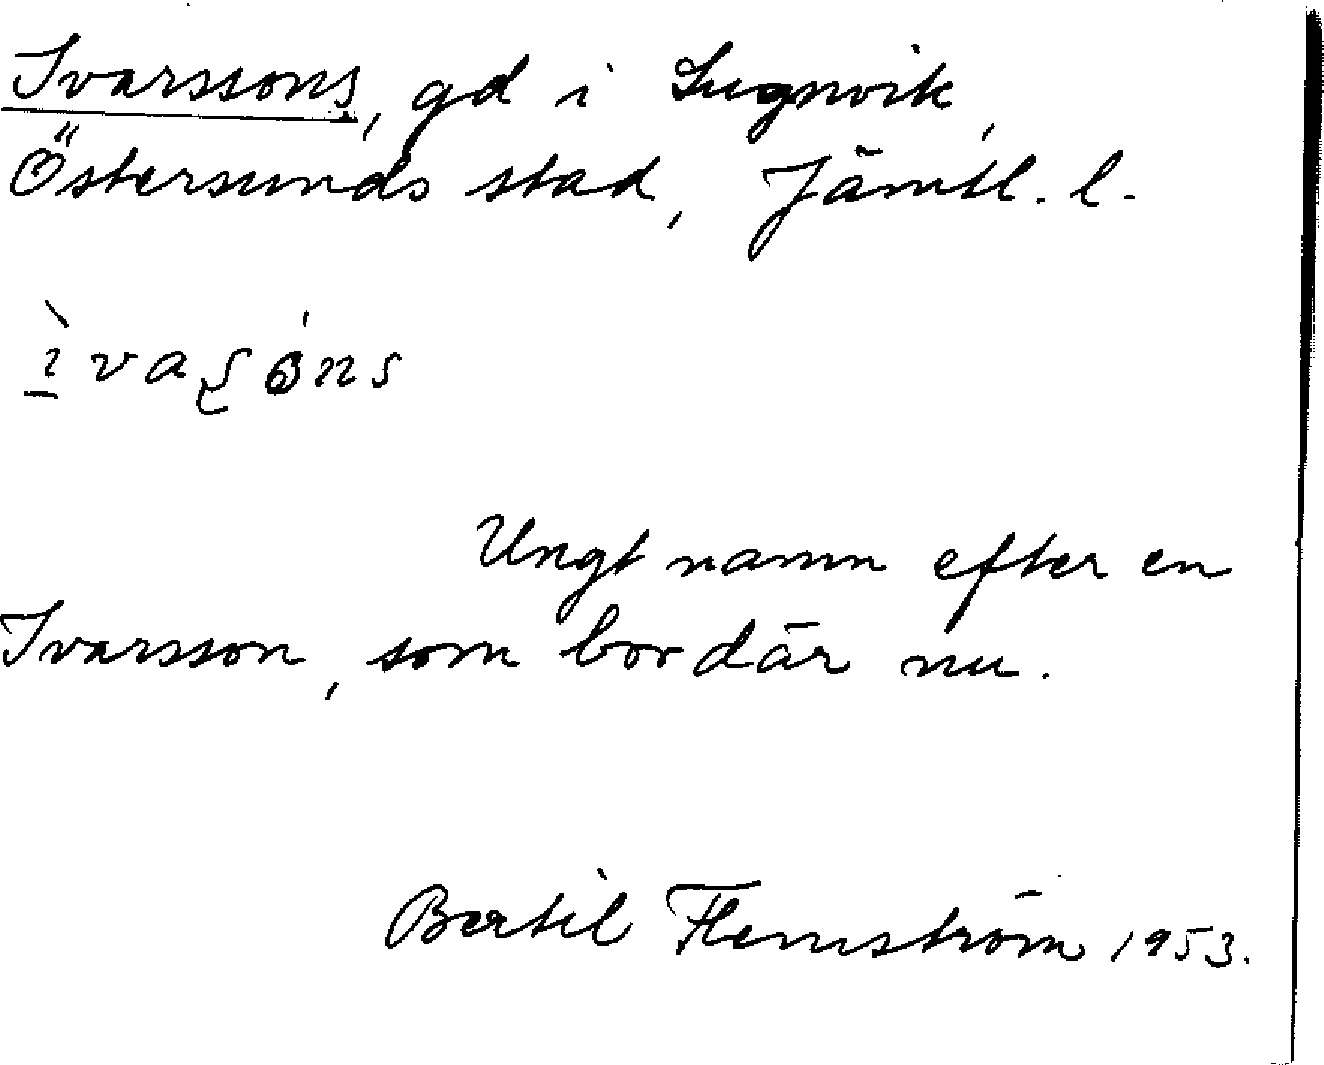 Ivarssons, gd i Lugnvik,
Östersunds stad, Jämtl. l.
Ungt namn efter en
Ivarsson, som bor där nu.
Bertil Flemström 1953.